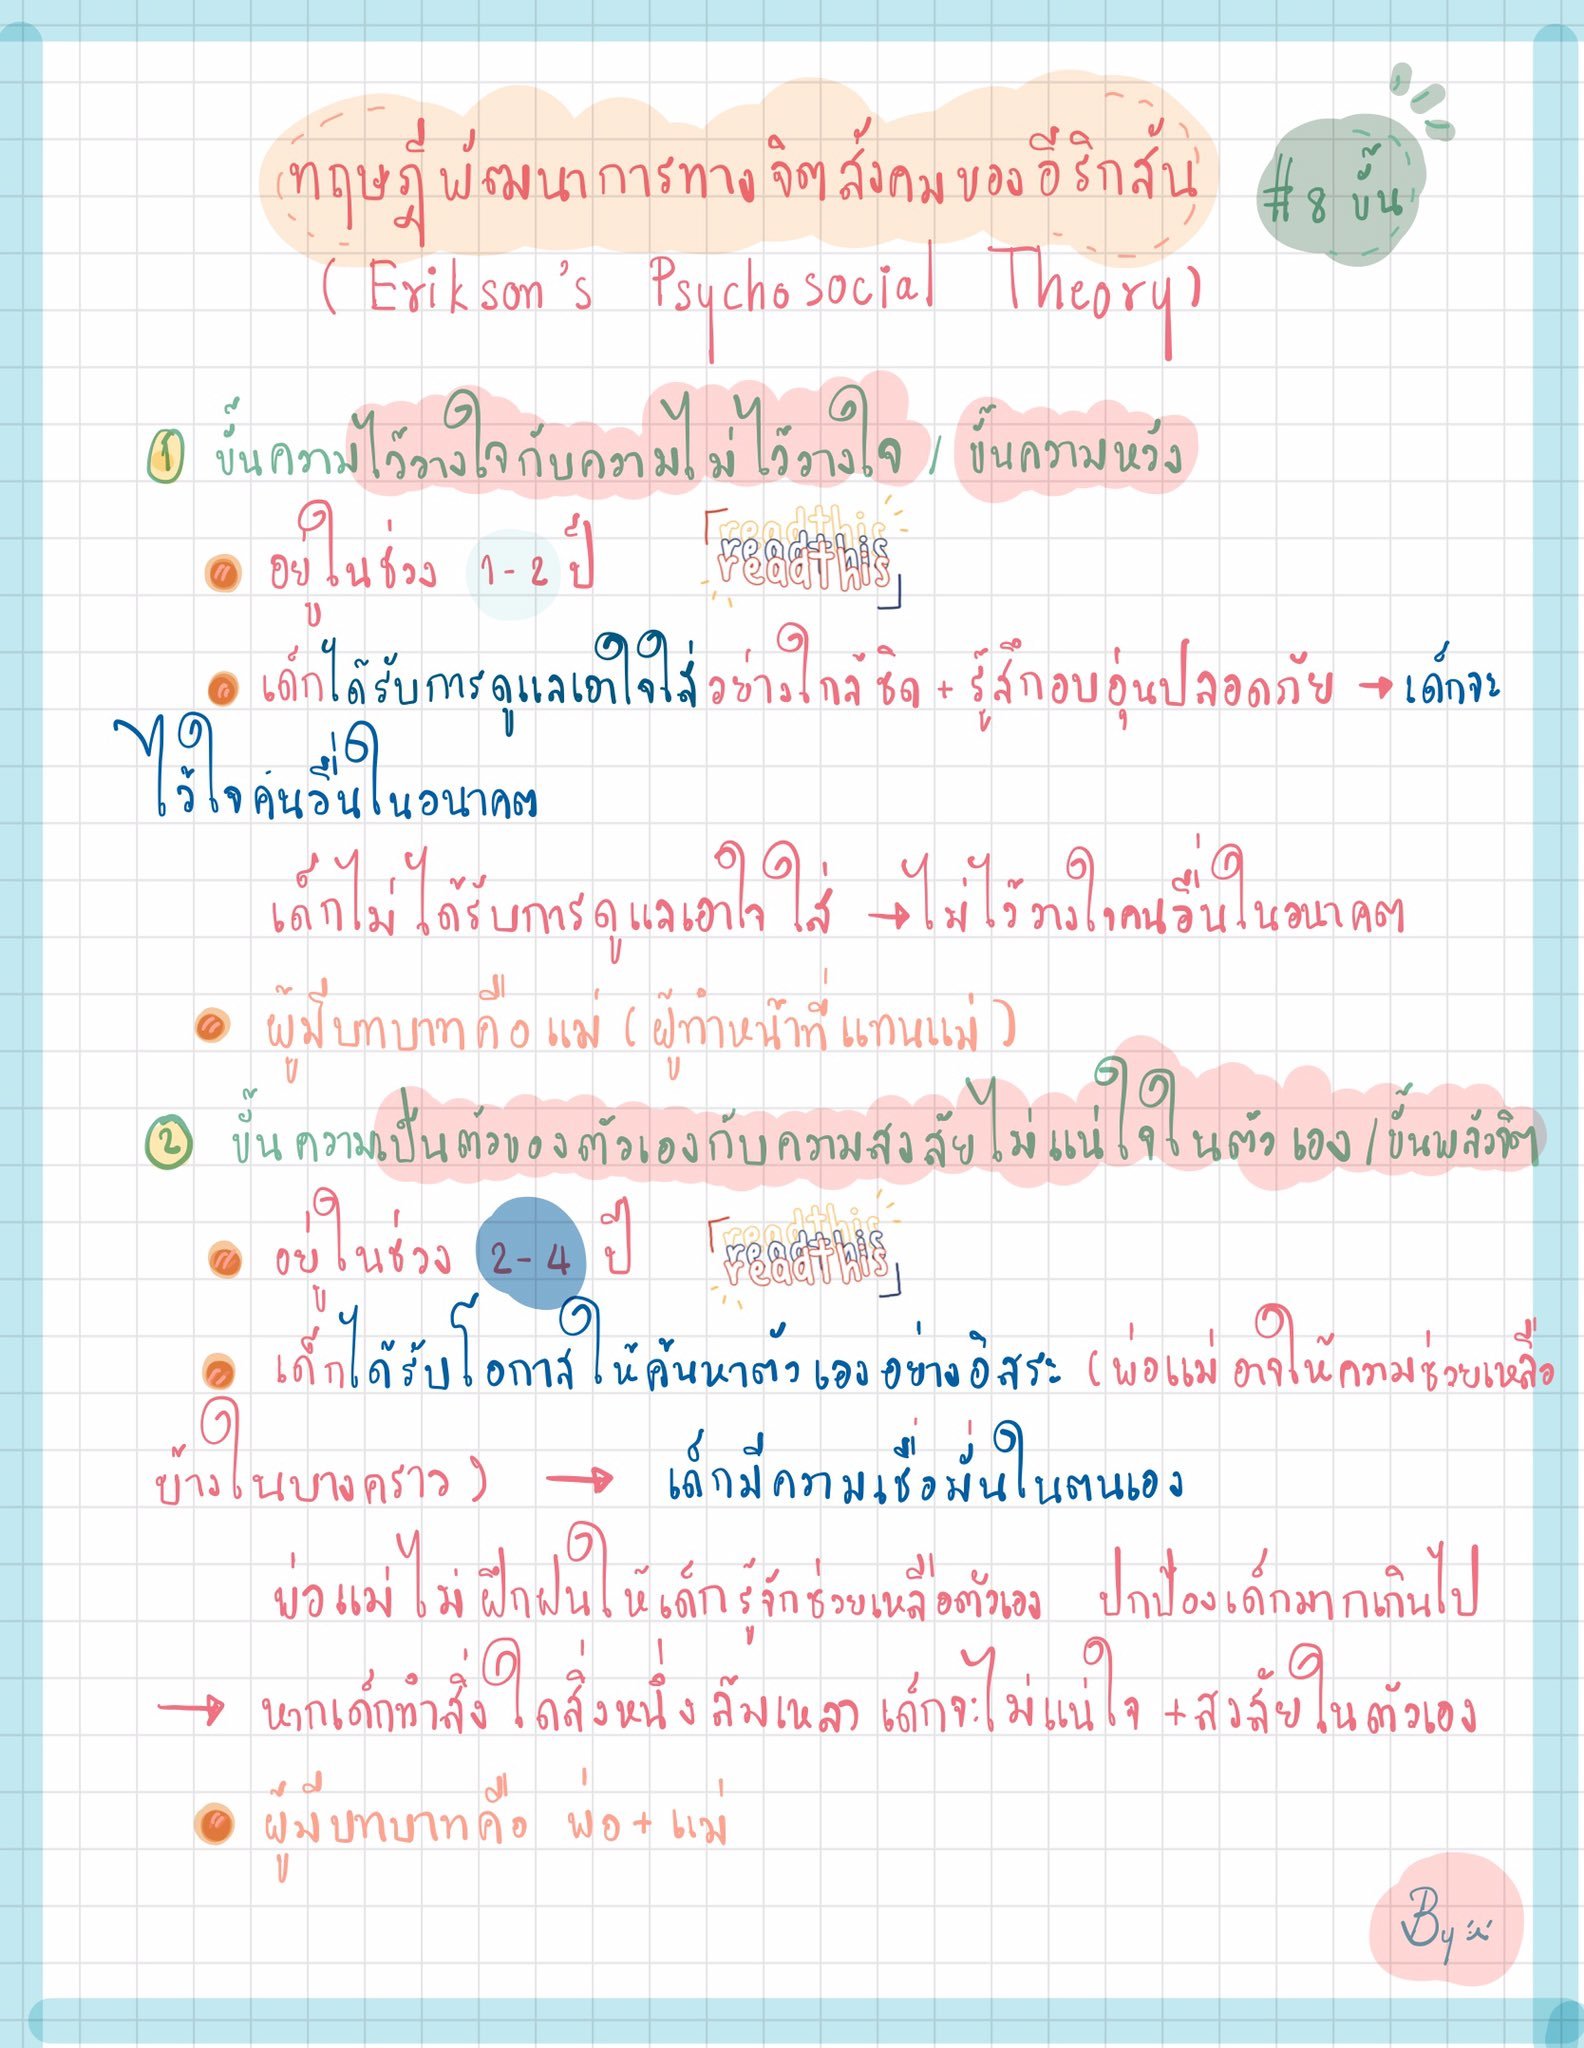 ทฤษฎีพัฒนาการทางจิตสังคมของอีริกสัน
#8 ขั้น
(Erikson's Psychosocial Theory)
1 ขั้นความไว้วางใจกับความไม่ไว้วางใจ / ขั้นความหวัง
อยู่ในช่วง 1-2 ปี
readthis
readthis
readthis
เด็กได้รับการดูแลเอาใจใส่อย่างใกล้ชิด + รู้สึกอบอุ่นปลอดภัย → เด็กจะ
ไว้ใจคนอื่นในอนาคต
เด็กไม่ได้รับการดูแลเอาใจใส่ → ไม่ไว้วางใจคนอื่นในอนาคต
ผู้มีบทบาทคือแม่ (ผู้ทำหน้าที่แทนแม่)
2 ขั้นความเป็นตัวของตัวเองกับความสงสัยไม่แน่ใจในตัวเอง / ขั้นพลังจิต
อยู่ในช่วง 2-4 ปี
readthis
readthis
readthis
เด็กได้รับโอกาสให้ค้นหาตัวเองอย่างอิสระ (พ่อแม่อาจให้ความช่วยเหลือ
บ้างในบางคราว) → เด็กมีความเชื่อมั่นในตนเอง
พ่อแม่ไม่ฝึกฝนให้เด็กรู้จักช่วยเหลือตัวเอง ปกป้องเด็กมากเกินไป
→ หากเด็กทำสิ่งใดสิ่งหนึ่งล้มเหลว เด็กจะไม่แน่ใจ + สงสัยในตัวเอง
ผู้มีบทบาทคือ พ่อ + แม่
By